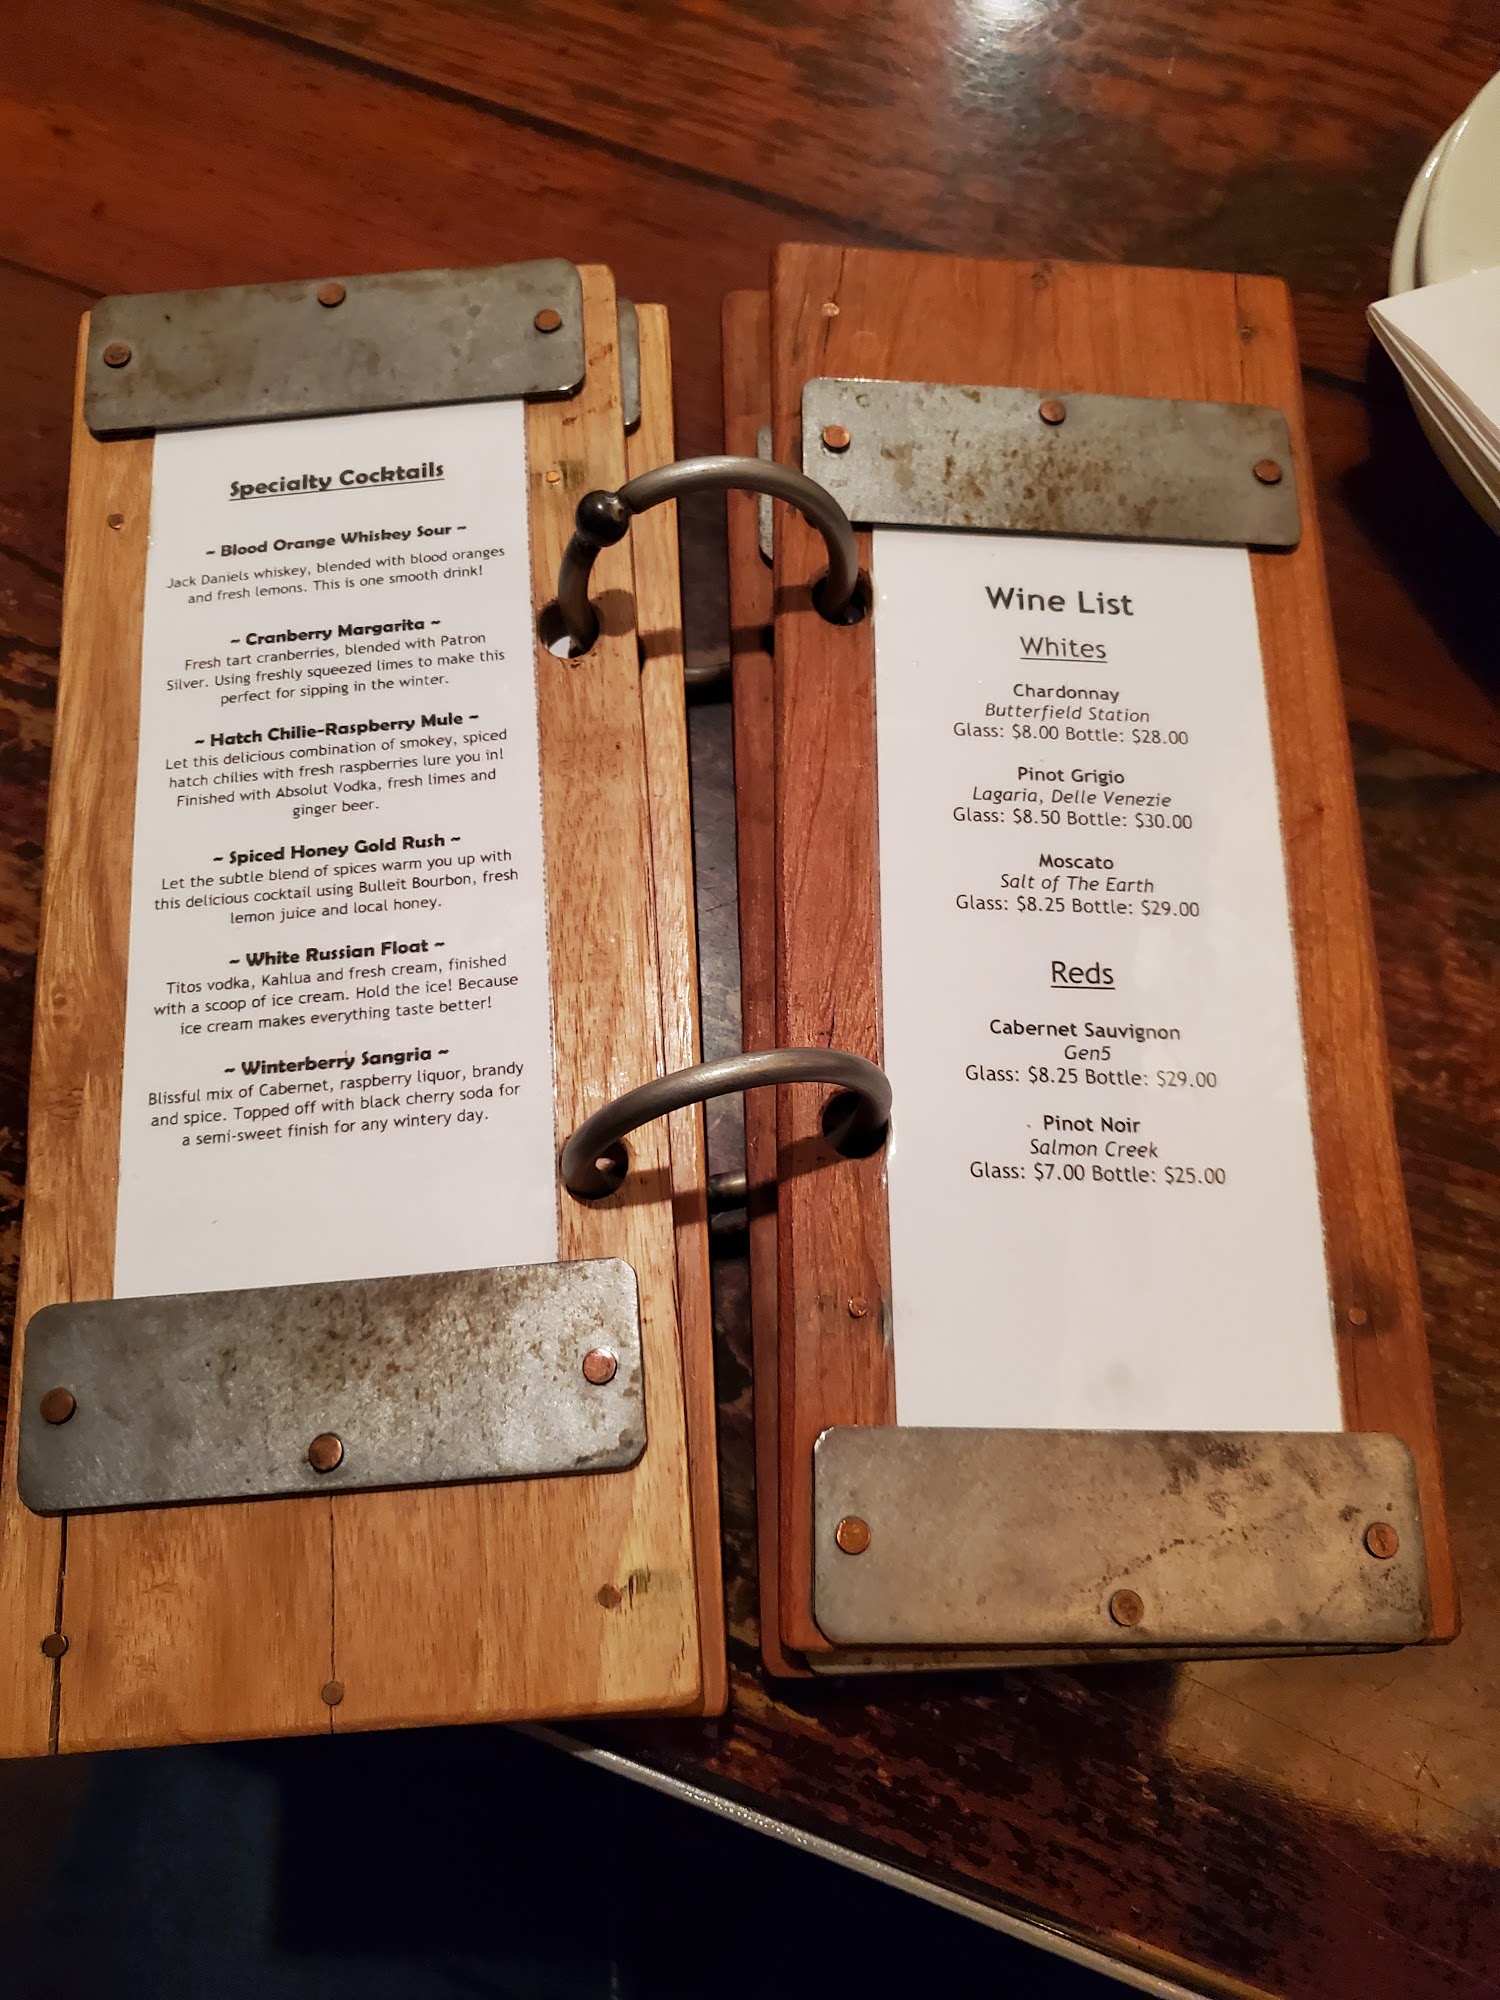 Specialty Cocktails
~ Blood Orange Whiskey Sour ~
Jack Daniels whiskey, blended with blood oranges
and fresh lemons. This is one smooth drink!
~ Cranberry Margarita ~
Fresh tart cranberries, blended with Patron
Silver. Using freshly squeezed limes to make this
perfect for sipping in the winter.
~ Hatch Chilie-Raspberry Mule ~
Let this delicious combination of smokey, spiced
hatch chilies with fresh raspberries lure you in!
Finished with Absolut Vodka, fresh limes and
ginger beer.
~ Spiced Honey Gold Rush ~
Let the subtle blend of spices warm you up with
this delicious cocktail using Bulleit Bourbon, fresh
lemon juice and local honey.
~ White Russian Float ~
Titos vodka, Kahlua and fresh cream, finished
with a scoop of ice cream. Hold the ice! Because
ice cream makes everything taste better!
~ Winterberry Sangria ~
Blissful mix of Cabernet, raspberry liquor, brandy
and spice. Topped off with black cherry soda for
a semi-sweet finish for any wintery day.
Wine List
Whites
Chardonnay
Butterfield Station
Glass: $8.00 Bottle: $28.00
Pinot Grigio
Lagaria, Delle Venezie
Glass: $8.50 Bottle: $30.00
Moscato
Salt of The Earth
Glass: $8.25 Bottle: $29.00
Reds
Cabernet Sauvignon
Gen5
Glass: $8.25 Bottle: $29.00
Pinot Noir
Salmon Creek
Glass: $7.00 Bottle: $25.00